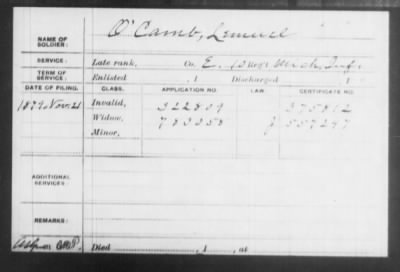 NAME OF SOLDIER: O'Camb, Lemuel
SERVICE: Late rank, Co. E, 10 Reg't Mich. Inf.
TERM OF SERVICE: Enlisted , 1 Discharged , 1
DATE OF FILING. CLASS. APPLICATION NO. LAW. CERTIFICATE NO.
1879 Nov. 21 Invalid, 322809 375812
Widow, 783358 557247
Minor,
ADDITIONAL SERVICES:
REMARKS:
Died , 1 , at